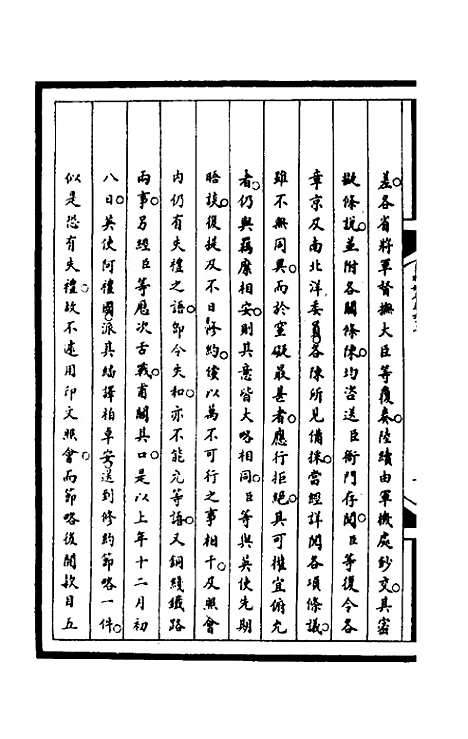 差各省將軍督撫大臣等復奏陸續由軍機處鈔交其密
啟條說並附各關條陳均咨送臣衙門存閱臣等復令各
章京及南北洋委員各陳所見備採當經詳閱各項條議
雖不無同異而於窒礙最甚者應行拒絕其可權宜俯允
者仍與羈縻相安則其意皆大略相同臣等與英使先期
晤談復提及不日修約儻以萬不可行之事相干及照會
內仍有失禮之語節令失和亦不能允等語又銅綫鐵路
兩事另經臣等應次舌戰甫關其口是以上年十二月初
八日英使阿禮國派其繙譯柏卓安送到修約節略一件
似是恐有失禮故不遽用印文照會而節略後開款目五